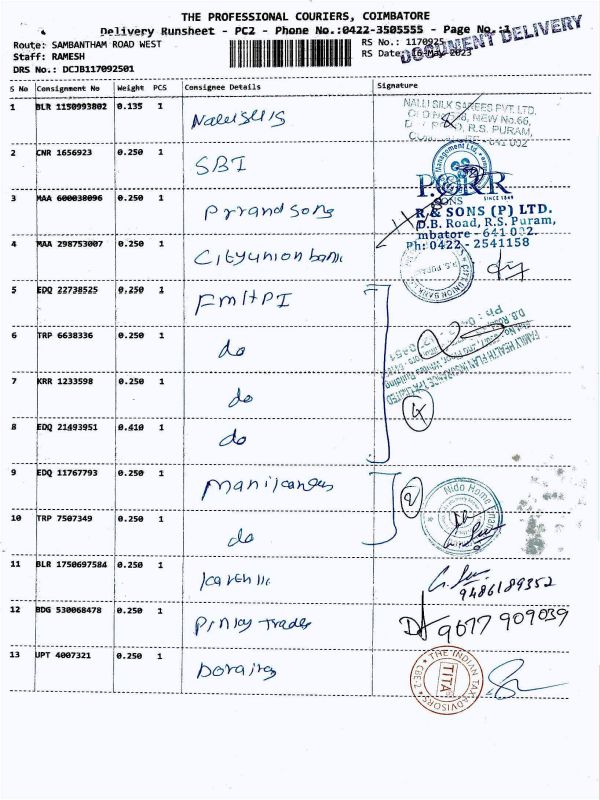 THE PROFESSIONAL COURIERS, COIMBATORE
Delivery Runsheet - PC2 - Phone No.:0422-3505555 - Page No.:1
DOCUMENT DELIVERY
Route: SAMBANTHAM ROAD WEST
RS No.: 1170925
Staff: RAMESH
RS Date: 16-May-2023
DRS No.: DCJB117092501
S No Consignment No Weight PCS Consignee Details Signature
1 BLR 1150993802 0.135 1
NALLI SILK SAREES PVT. LTD.
NEW No.66,
R.S. PURAM,
641 002
2 CNR 1656923 0.250 1 SBI
Management Ltd.
3 MAA 600038096 0.250 1 Prrandsons
P.ORR
SONS
SINCE 1849
R & SONS (P) LTD.
D.B. Road, R.S. Puram,
mbatore - 641 002.
Ph: 0422 - 2541158
4 MAA 298753007 0.250 1 Cityunionbank
CITY UNION BANK
R.S. PURAM
5 EDQ 22738525 0.250 1 FMHPI
6 TRP 6638336 0.250 1 do
FAMILY HEALTH PLAN INSURANCE TPA LIMITED
7 KRR 1233598 0.250 1 do
4
8 EDQ 21493951 0.410 1 do
9 EDQ 11767793 0.250 1
2
Nido Home
10 TRP 7507349 0.250 1 do
11 BLR 1750697584 0.250 1
9486189352
12 BDG 530068478 0.250 1 Traders
9677 909039
13 UPT 4007321 0.250 1
THE INDIAN TAX ADVISORS
TITA
CBE-2